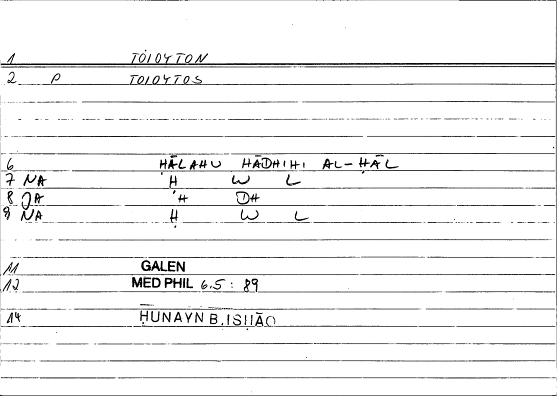 1 TOIOYTON
2 P TOIOYTOS
6 ḤĀLAHU HĀDHIHI AL-ḤĀL
7 NA Ḥ W L
8 JA H DH
9 NA Ḥ W L
11 GALEN
12 MED PHIL 6.5 : 89
14 ḤUNAYN B. ISḤĀQ